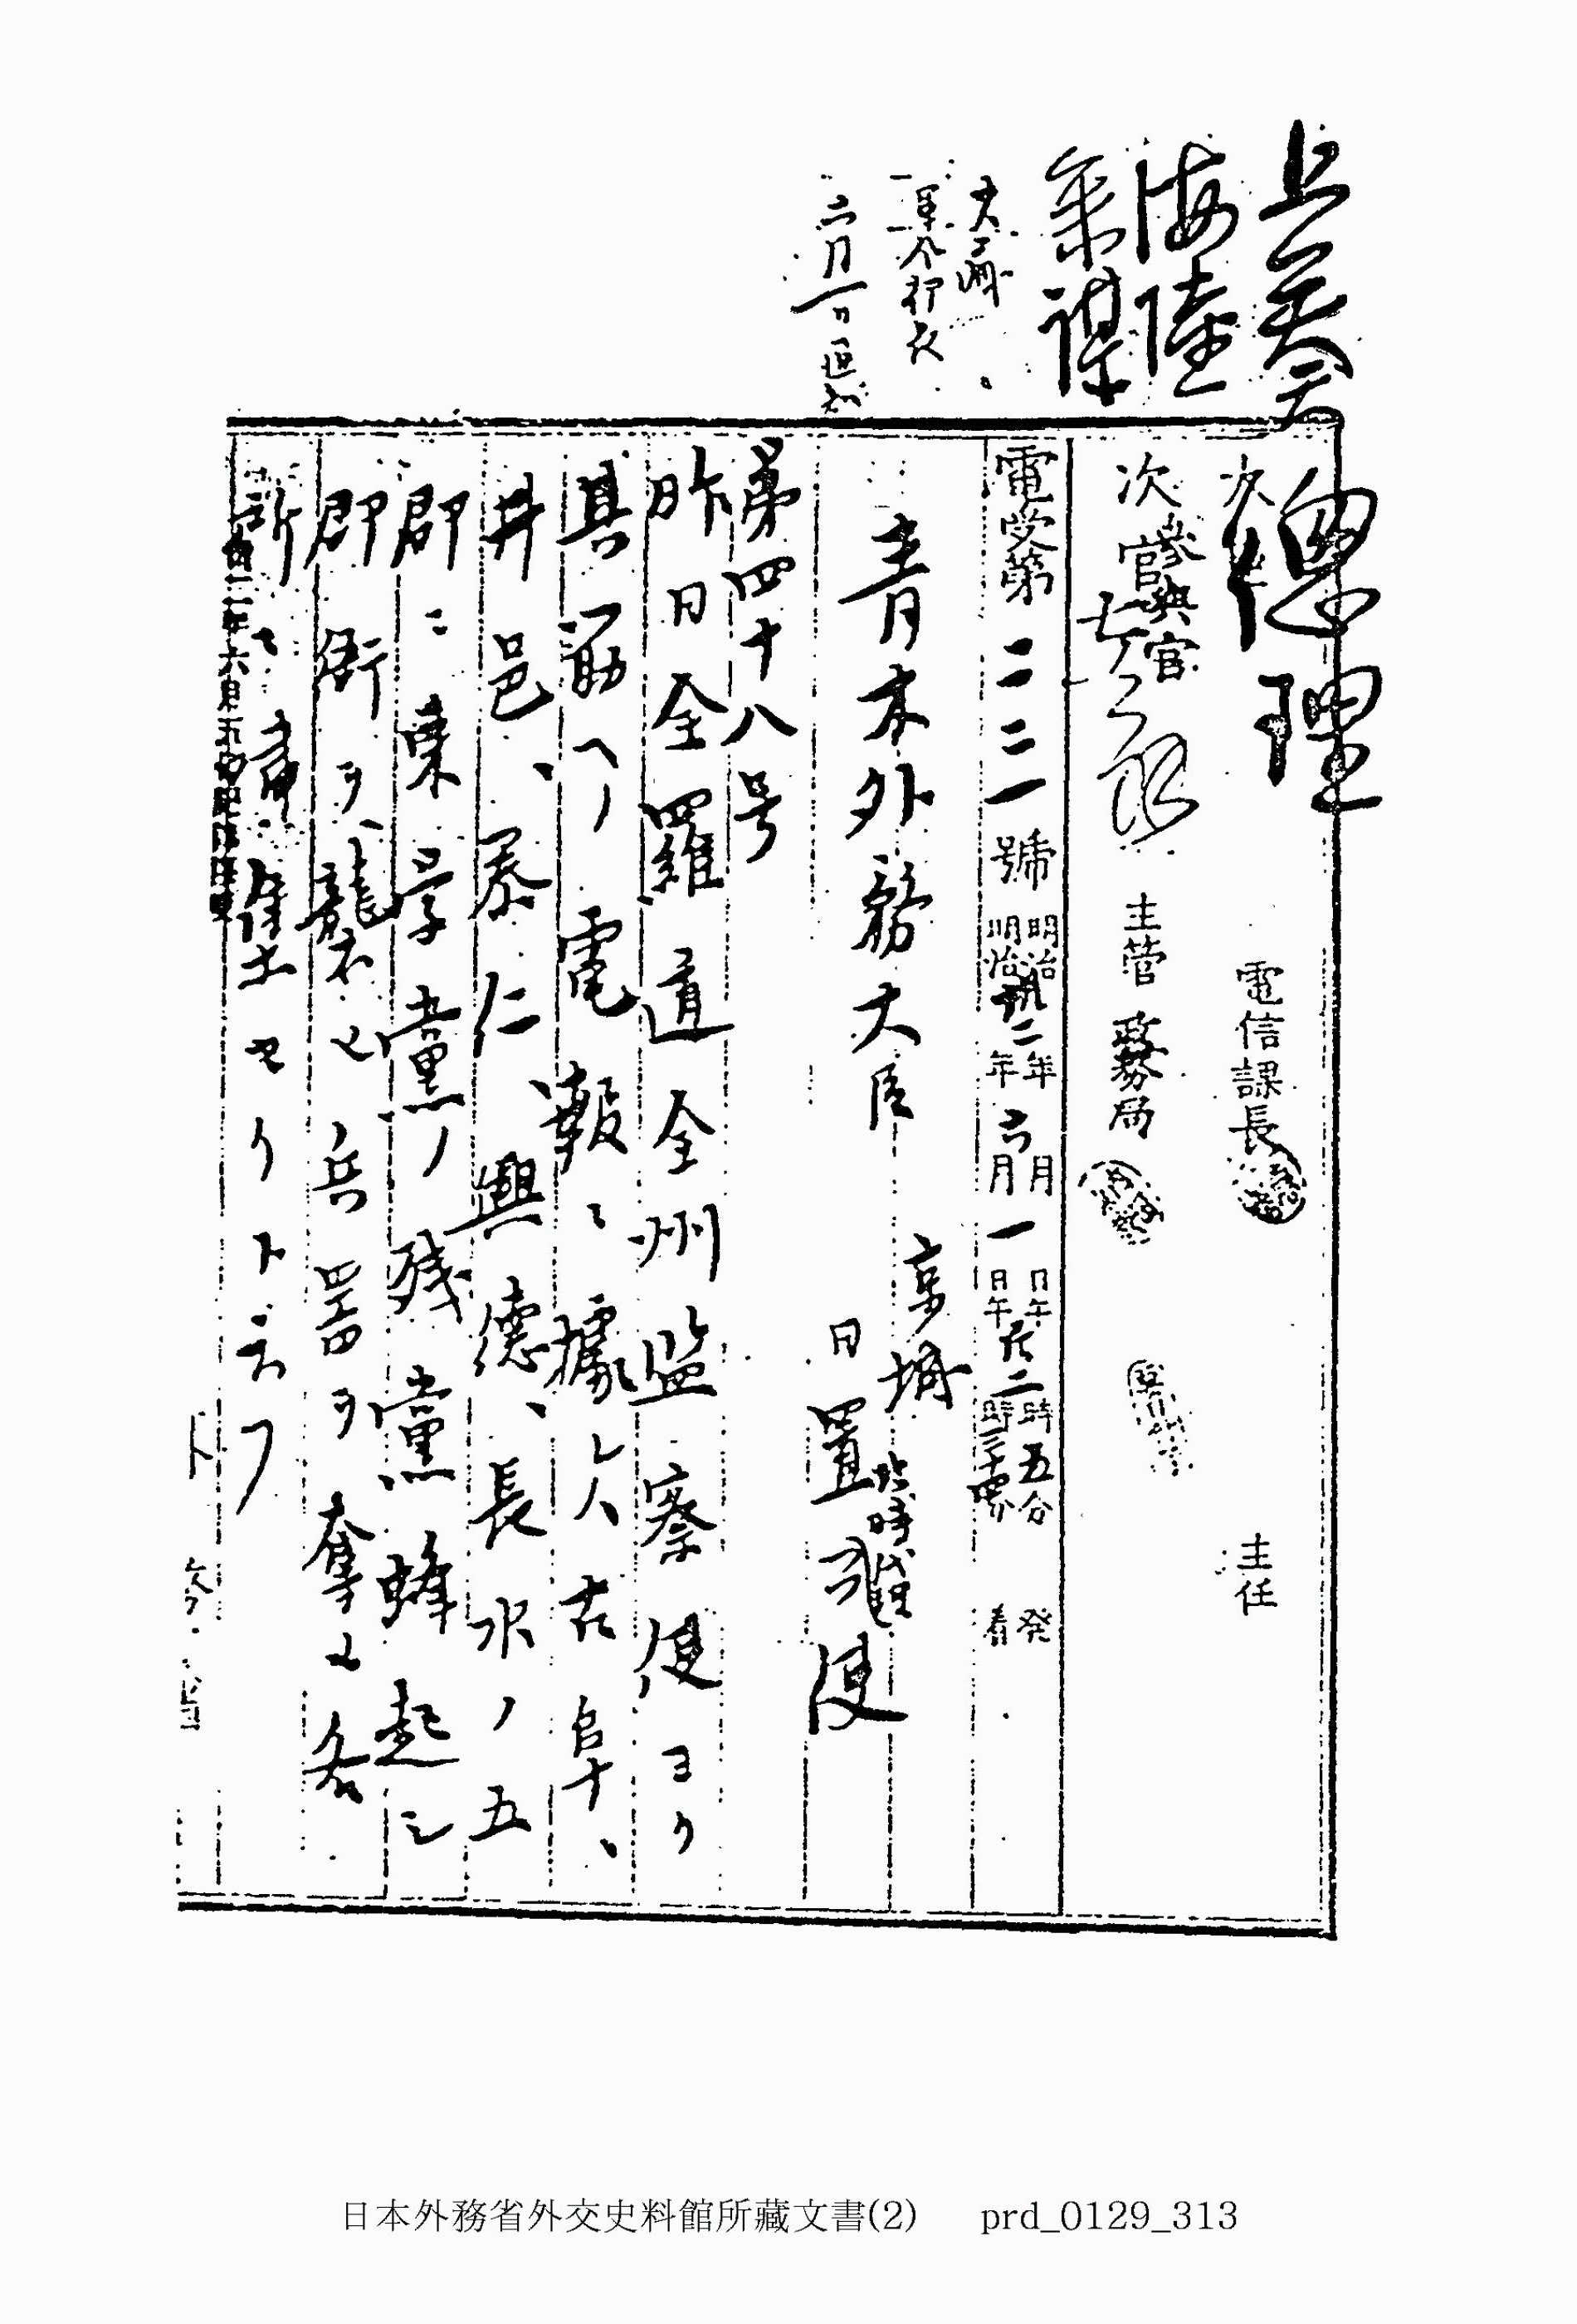 上奏
海陸
参謀
六月一日
總理
電信課長
主任
次官
参與官
主管 政務局
電受第二三一號
明治卅二年六月一日午后二時五分發
明治 年 月 日午 時三十 分着
青木外務大臣
京城
臨時代理
日置公使
第四十八号
昨日全羅道全州監察使ヨリ
其筋ヘノ電報ニ據レハ古阜、
井邑、泰仁、興德、長水ノ五
郡ニ東学黨ノ残黨蜂起シ
郡衙ヲ襲ヒ兵器ヲ奪ヒ各
所ニ嘯集セリト云フ
日本外務省外交史料館所藏文書(2) prd_0129_313